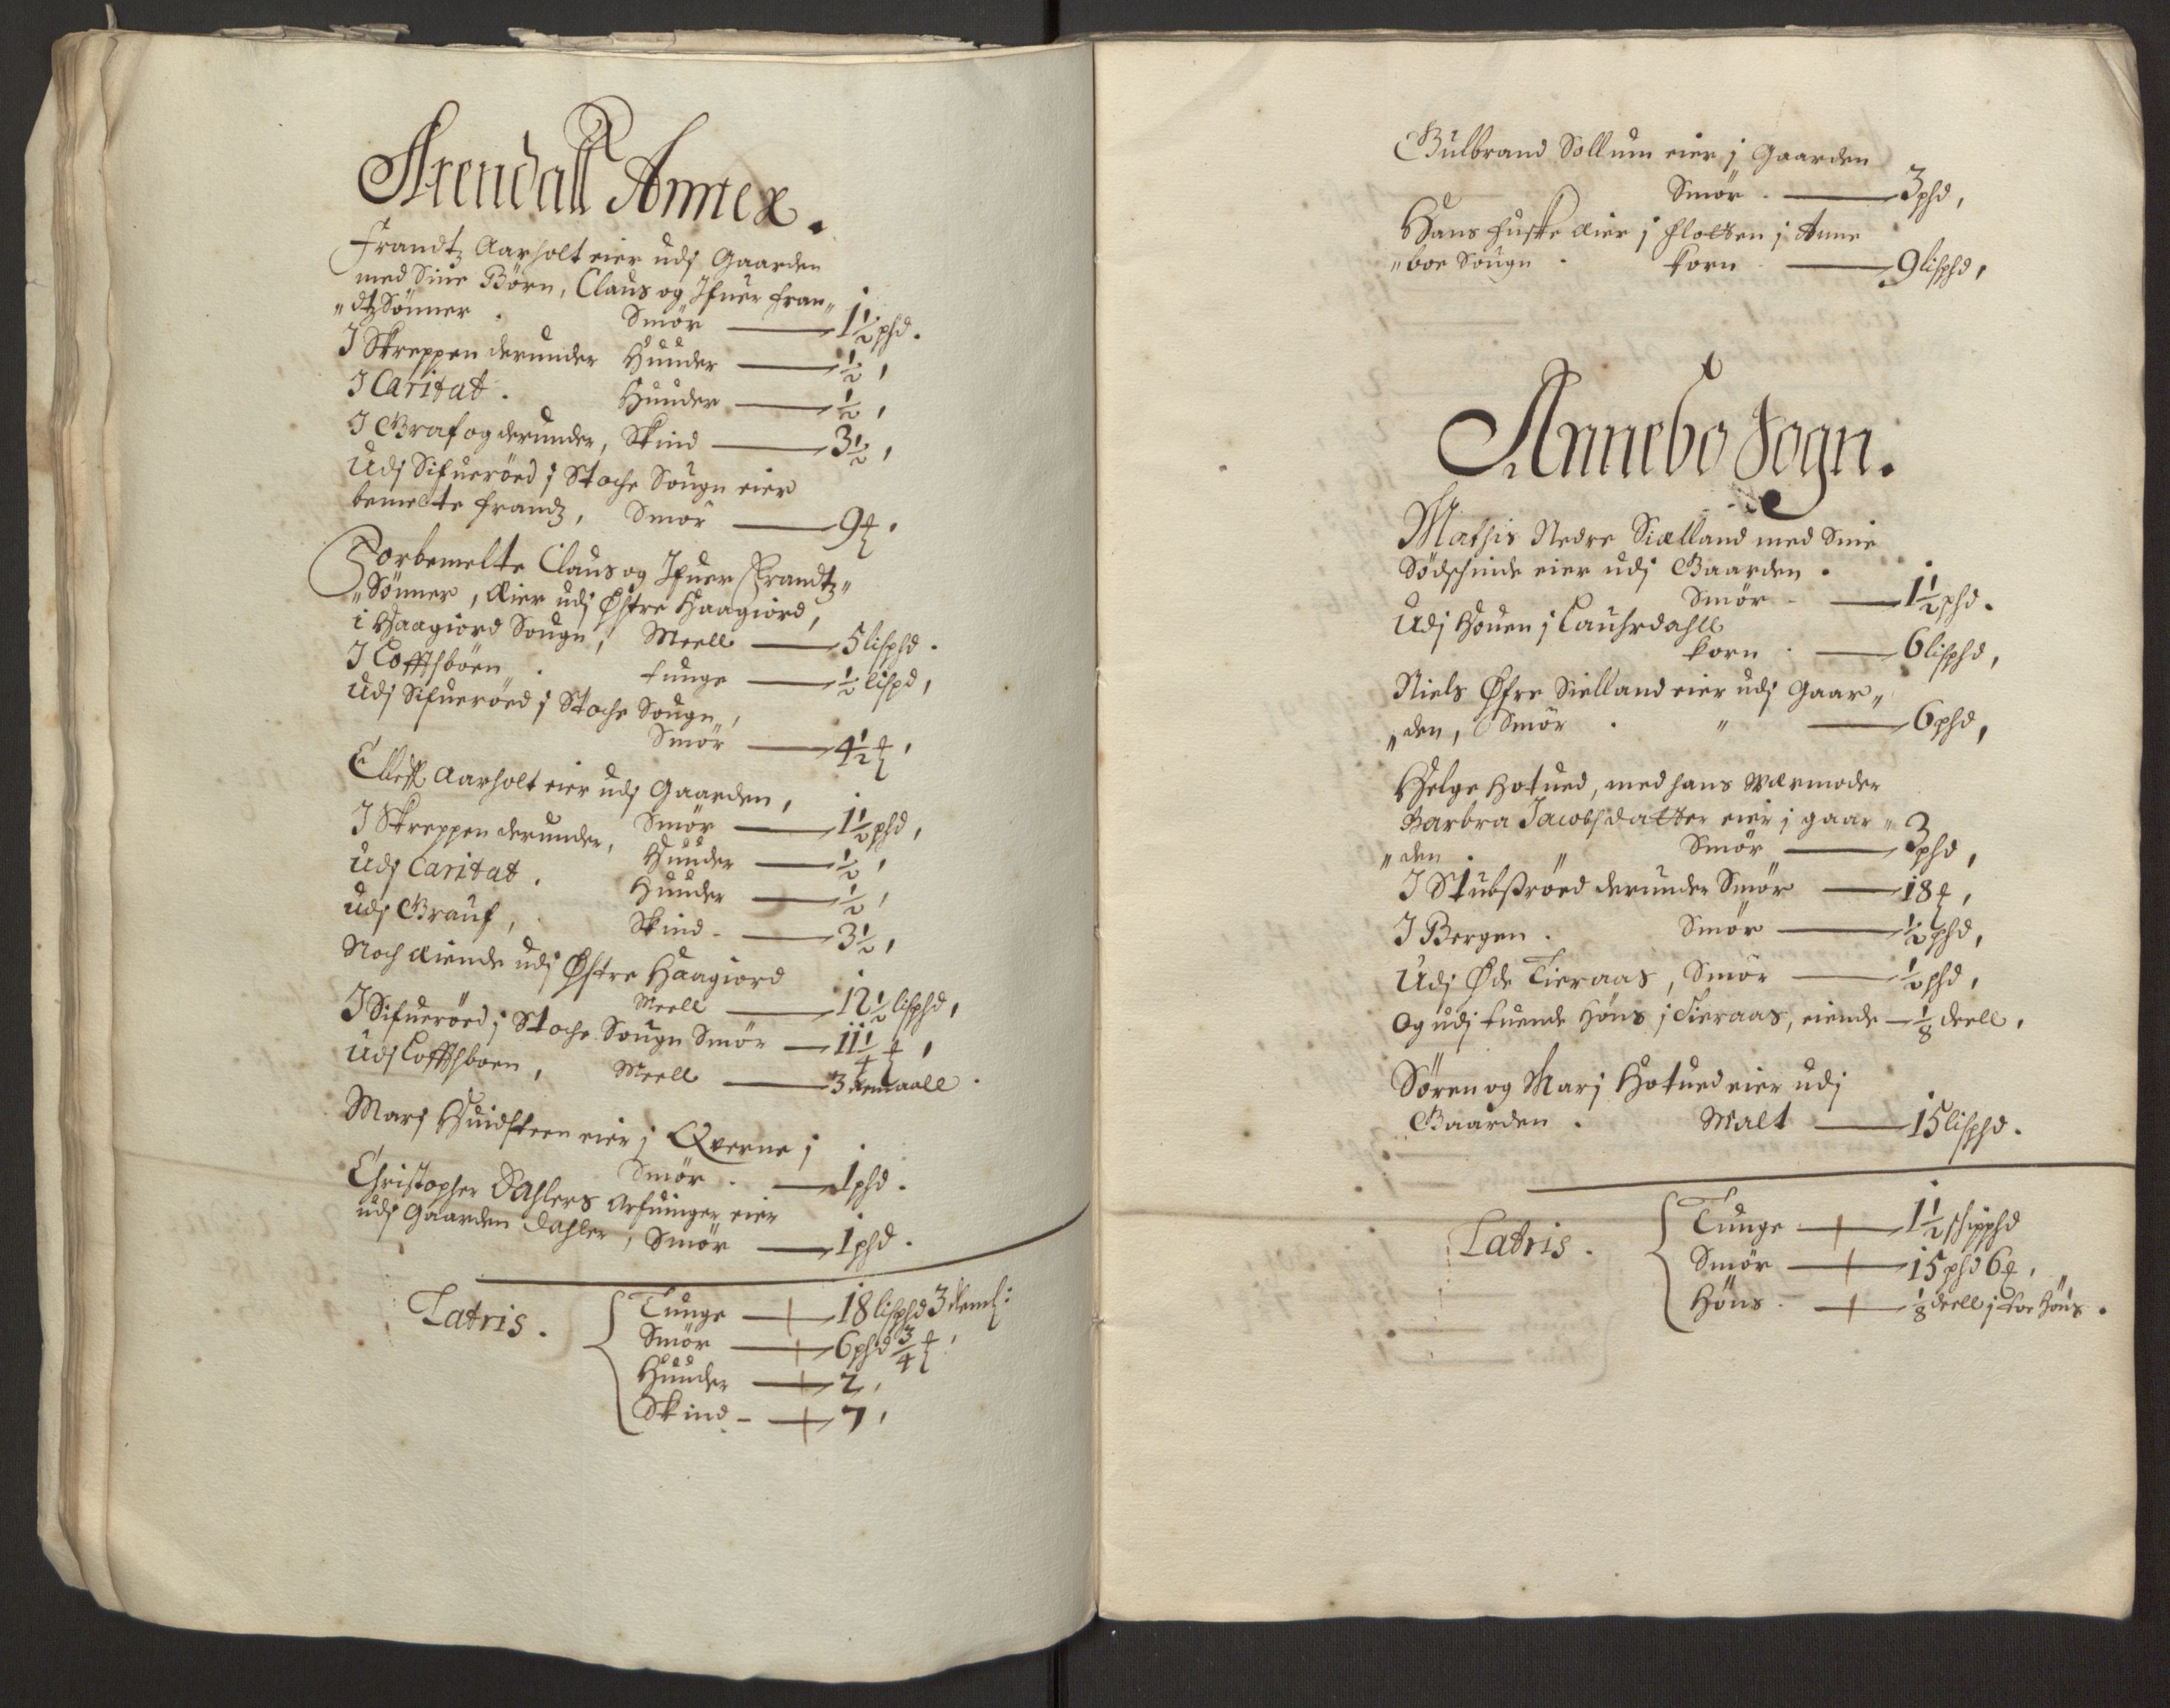 Arendall Annex.
Frandtz Aarholt eier udj Gaarden
med Sine Börn, Claus og Ifuer Fran„
„dtzSönner . Smör — 1½ phd.
I Skreppen derunder Huuder — ½,
I Caritat. Huuder — ½,
I Graf og derunder, Skind — 3½,
Udj Sifueröed j Stoche Sougn eier
bemelte Frandz, Smör — 9 ℔.
Forbemelte Claus og Ifuer Frandtz„
„Sönner, Eier udj Østre Haagiord,
i Haagiord Sougn, Meell — 5 lisphd.
I Coffshöen . tunge — ½ lispd,
Udj Sifueröed j Stoche Sougn,
Smör — 4½ ℔,
Elleff Aarholt eier udj Gaarden,
Smör — 1½ phd,
I Skreppen derunder, Huuder — ½,
Udj Caritat. Huuder — ½,
udj Grauf, Skind — 3½,
Noch Eiende udj Østre Haagiord
Meell — 12½ lisphd,
I Sifueröed j Stoche Sougn Smör — 11¼ ℔,
Udj Coffshoen, Meell — 3 Remaall.
Marj Huidsteen eier j Qverne j
Smör . — 1 phd.
Christopher Dahlers Arfuinger eier
udj Gaarden Dahler, Smör — 1 phd.
Latris. Tunge — 18 lisphd 3 Rem:
Smör — 6 phd ¾ ℔,
Huuder — 2,
Skind — 7,
Gulbrand Sollum eier j Gaarden
Smör . — 3 phd,
Hans Fuske Eier j Flotten j Anne
„boe Sougn . korn — 9 lisphd,
Annebo Sogn.
Mathis Nedre Siælland med Sine
Södschinde eier udj Gaarden.
Smör — 1½ phd.
Udj Houen j Lauhrdahll
korn . — 6 lisphd,
Niels Øfre Sielland eier udj Gaar„
„den, Smör . „ — 6 phd,
Helge Hotued, med hans Værmoder
Barbra Jacobsdatter eier j gaar„
„den . „ Smör — 3 phd,
I Stubsröed derunder Smör — 18 ℔,
I Bergen . Smör — ½ phd,
Udj Øde Tieraas, Smör — ½ phd,
Og udj tuende Höns j Tieraas, eiende — ⅛ deell,
Sören og Marj Hotued eier udj
Gaarden . Malt — 15 lisphd.
Latris. Tunge — 1½ schipphd
Smör — 15 phd 6 ℔,
Höns . — ⅛ deell j toe Höns.